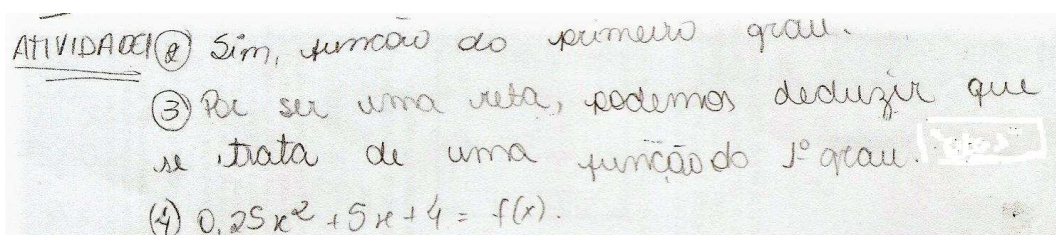 ATIVIDADE 1 ② Sim, função do primeiro grau.
③ Por ser uma reta, podemos deduzir que
se trata de uma função do 1º grau.
④ 0,25x² + 5x + 4 = f(x).